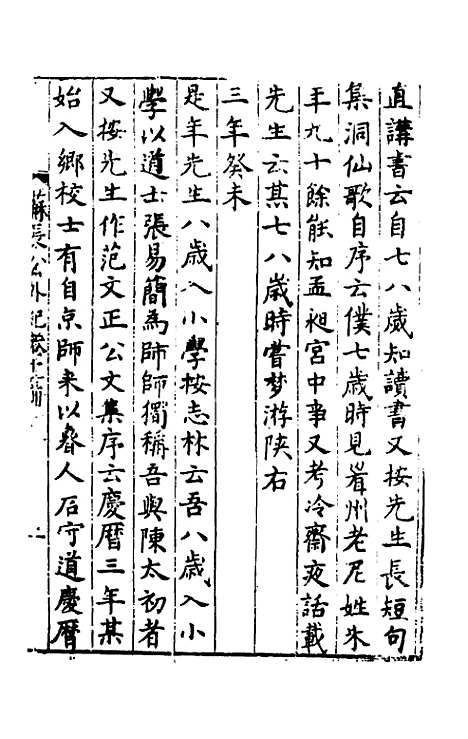 直講書云自七八歲知讀書又按先生長短句
集洞仙歌自序云僕七歲時見眉州老尼姓朱
年九十餘能知孟昶宮中事又考冷齋夜話載
先生云其七八歲時嘗夢游陝右
三年癸未
是年先生八歲入小學按志林云吾八歲入小
學以道士張易簡為師師獨稱吾與陳太初者
又按先生作范文正公文集序云慶曆三年某
始入鄉校士有自京師來以魯人石守道慶曆
蘇長公外紀卷十
二